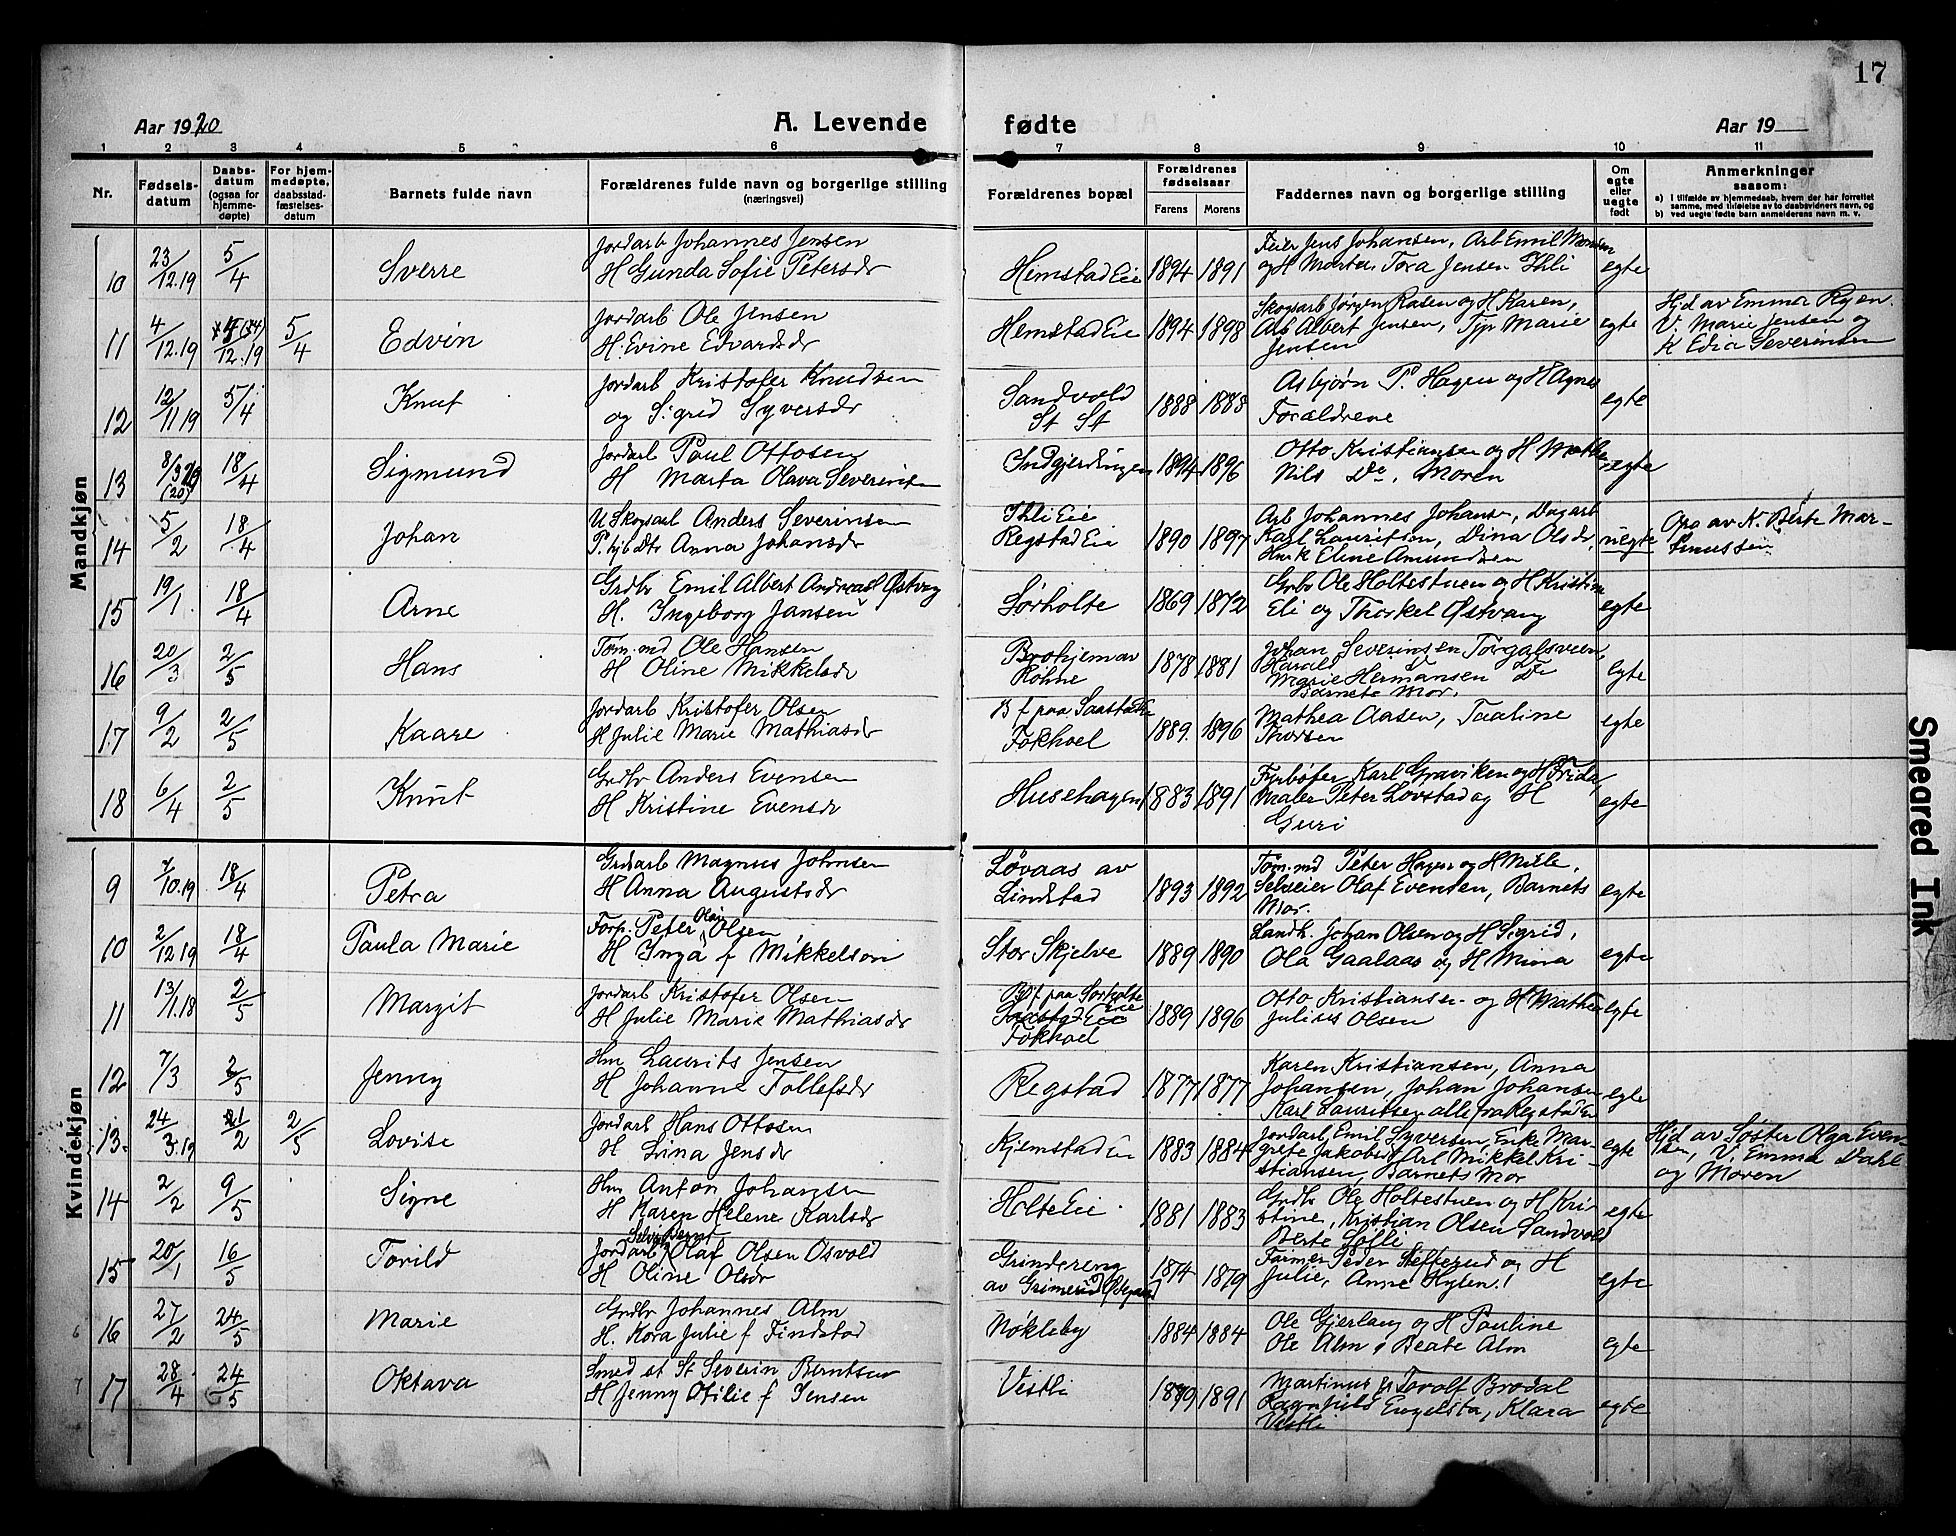 17
Aar 1920
A. Levende fødte
Aar 19
1 2 3 4 5 6 7 8 9 10 11
Nr.
Fødsels-
datum
Daabs-
datum
(ogsaa for
hjemme-
døpte)
For hjem-
medøpte,
daabsstad-
fæstelses-
datum
Barnets fulde navn
Forældrenes fulde navn og borgerlige stilling
(næringsvei)
Forældrenes bopæl
Forældrenes
fødselsaar
Farens Morens
Faddernes navn og borgerlige stilling
Om
egte
eller
uegte
født
Anmerkninger
saasom:
a) I tilfælde av hjemmedaab, hvem der har forrettet
samme, med tilføielse av to daabsvidners navn, og
b) ved uegte fødte barn anmelderens navn m. v.
Mandkjøn
10 23/12.19 5/4 Sverre
Jordarb Johannes Jensen
H Gunda Sofie Petersdr
Hemstad Eie 1894 1891
Feier Jens Johansen, Arb Emil Monsen
og H Marte, Tora Jensen Thli
egte
11 4/12.19 12.19 5/4 Edvin
Jordarb Ole Jensen
H. Evine Edvardsdr
Hemstad Eie 1894 1898
Skogsarb Jørgen Rasen og H Karen,
Arb Albert Jensen, Tjp Marie
Jensen
egte
Hjd av Emma Ryen.
V. Marie Jensen og
K Edia Severinsen
12 12/11 19 5/4 Knut
Jordarb Kristofer Knudsen
og Sigrid Syversdr
Sandvold
St St
1888 1888
Asbjørn P. Hagen og H Agnes
Forældrene
egte
13 8/3 (20) 18/4 Sigmund
Jordarb Paul Ottosen
H Marta Olava Severinsen
Indgjerdingen 1894 1896
Otto Kristiansen og H Mathea
Nils Do, Moren
egte
14 5/2 18/4 Johan
U Skogsarb Anders Severinsen
P. hjb Dtr Anna Johansdr
Thli Eie
Regstad Eie
1890 1897
Arb Johannes Johansn, Dagarb
Karl Lauritsen, Dina Olsdr,
Hmk Eline Amundsen
uegte
Opg av K. Berte Mar-
tinussen
15 19/1 18/4 Arne
Grdbr Emil Albert Andreas Østvang
H. Ingeborg Jansen
Sørholte 1869 1872
Grbr Ole Holtestuen og H Kristine
Eli og Thorkel Østvang
egte
16 20/3 2/5 Hans
Tøm.md Ole Hansen
H Oline Mikkelsdr
Brohjem av
Røhne
1878 1881
Johan Severinsen Torgalsveen,
Harald Do
Marie Hermansen Do
Barnets Mor.
egte
17 9/2 2/5 Kaare
Jordarb Kristofer Olsen
H Julie Marie Mathiasdr
B f paa Saastad Eie
Fokhoel
1889. 1896
Mathea Aasen, Taaline
Thorsen
egte
18 6/4 2/5 Knut
Grdbr Anders Evensen
H Kristine Evensdr
Husehagen 1883 1891
Fyrbøter Karl Graviken og H Frida,
Maler Peter Løvstad og H
Guri
egte
Kvindekjøn
9 7/10.19 18/4 Petra
Grdsarb Magnus Johnsen
H Anna Augustsdr
Løvaas av
Lindstad
1893 1892
Tøm.md Peter Hagen og H Mille,
Selveier Olaf Evensen, Barnets
Mor.
egte
10 2/12 19 18/4 Paula Marie
Forp. Peter Olaj Olsen
H Inga f Mikkelson
Stor Skjelve 1889 1890
Landh. Johan Olsen og H Sigrid,
Ola Gaalaas og H Mina
egte
11 13/1.18 2/5 Margit
Jordarb Kristofer Olsen
H Julie Marie Mathiasdr
B f paa Sørholte
Saastad Eie Eie
Fokhoel
1889 1896
Otto Kristiansen og H Mathea
Julius Olsen
egte
12 7/3 2/5 Jenny
Hm Laurits Jensen
H Johanne Tollefsdr
Regstad 1877 1877
Karen Kristiansen, Anna
Johansen, Johan Johansen
Karl Lauritsen alle fra Regstad Eie
egte
13. 24/3.19 21/2 2/5 Lovise
Jordarb Hans Ottosen
H Lina Jensdr
Kjemstad Eie 1883 1884
Jordarb Emil Syversen, Enke Mar-
grete Jakobsd, Arb Mikkel Kri-
stiansen, Barnets Mor
egte
Hjd av Søster Olga Even-
sen, V. Emma Dahl
og Moren
14 2/2 9/5 Signe
Hm Anton Johansen
H Karen Helene Karlsdr
Holte Eie. 1881 1883
Grdbr Ole Holtestuen og H Kri-
stine, Kristian Olsen Sandvold
Berte Søfli
egte
15 20/1 16/5 Torild
Jordarb Olaf Olsen Osvold
H Oline Olsdr
Grindereng
av Grimerud
1874 1879
Farmer Peder Steffsrud og H
Julie, Anne Hylen.
egte
6 16 27/2 24/5 Marie
Grdbr Johannes Alm
H. Kora Julie f Findstad
Nøkleby 1884 1884
Ole Gjerlaug og H Pauline
Ole Alm, Beate Alm
egte
7 17 28/4 24/5 Oktava
Smed st St Severin Berntsen
H Jenny Otilie f Jensen
Vestli 1889 1891
Martinus og Torolf Brodal
Ragnhild Engelsta, Klara
Vestli
egte
Smeared Ink